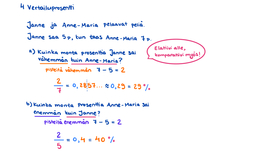 4 Vertailuprosentti
Janne ja Anne-Maria pelaavat peliä.
Janne saa 5 p, kun taas Anne-Maria 7 p.
a) Kuinka monta prosenttia Janne sai
vähemmän kuin Anne-Maria?
pisteitä vähemmän 7 - 5 = 2
2/7 = 0,2857... ≈ 0,29 = 29 %
b) Kuinka monta prosenttia Anne-Maria sai
enemmän kuin Janne?
pisteitä enemmän 7 - 5 = 2
2/5 = 0,4 = 40 %